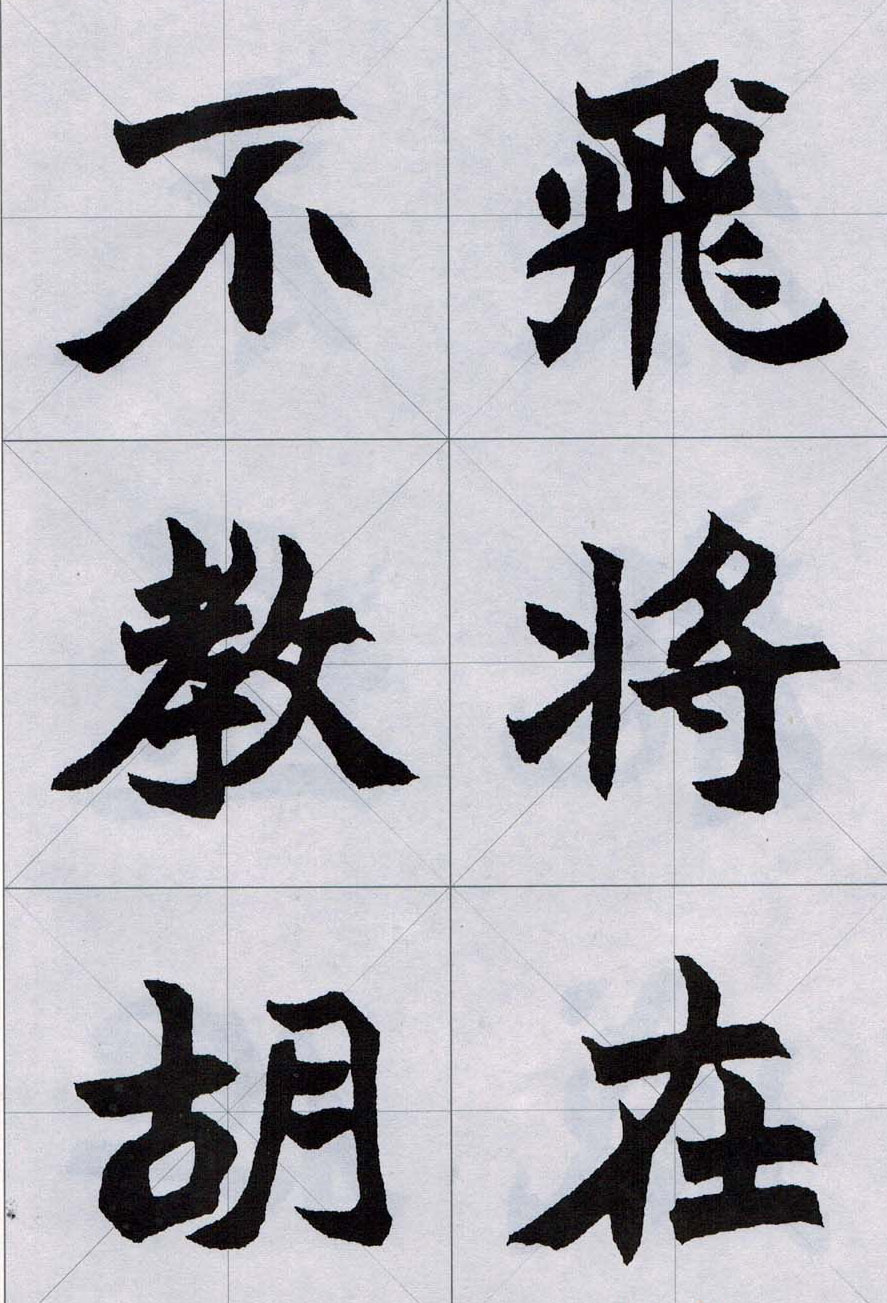 飛将在
不教胡